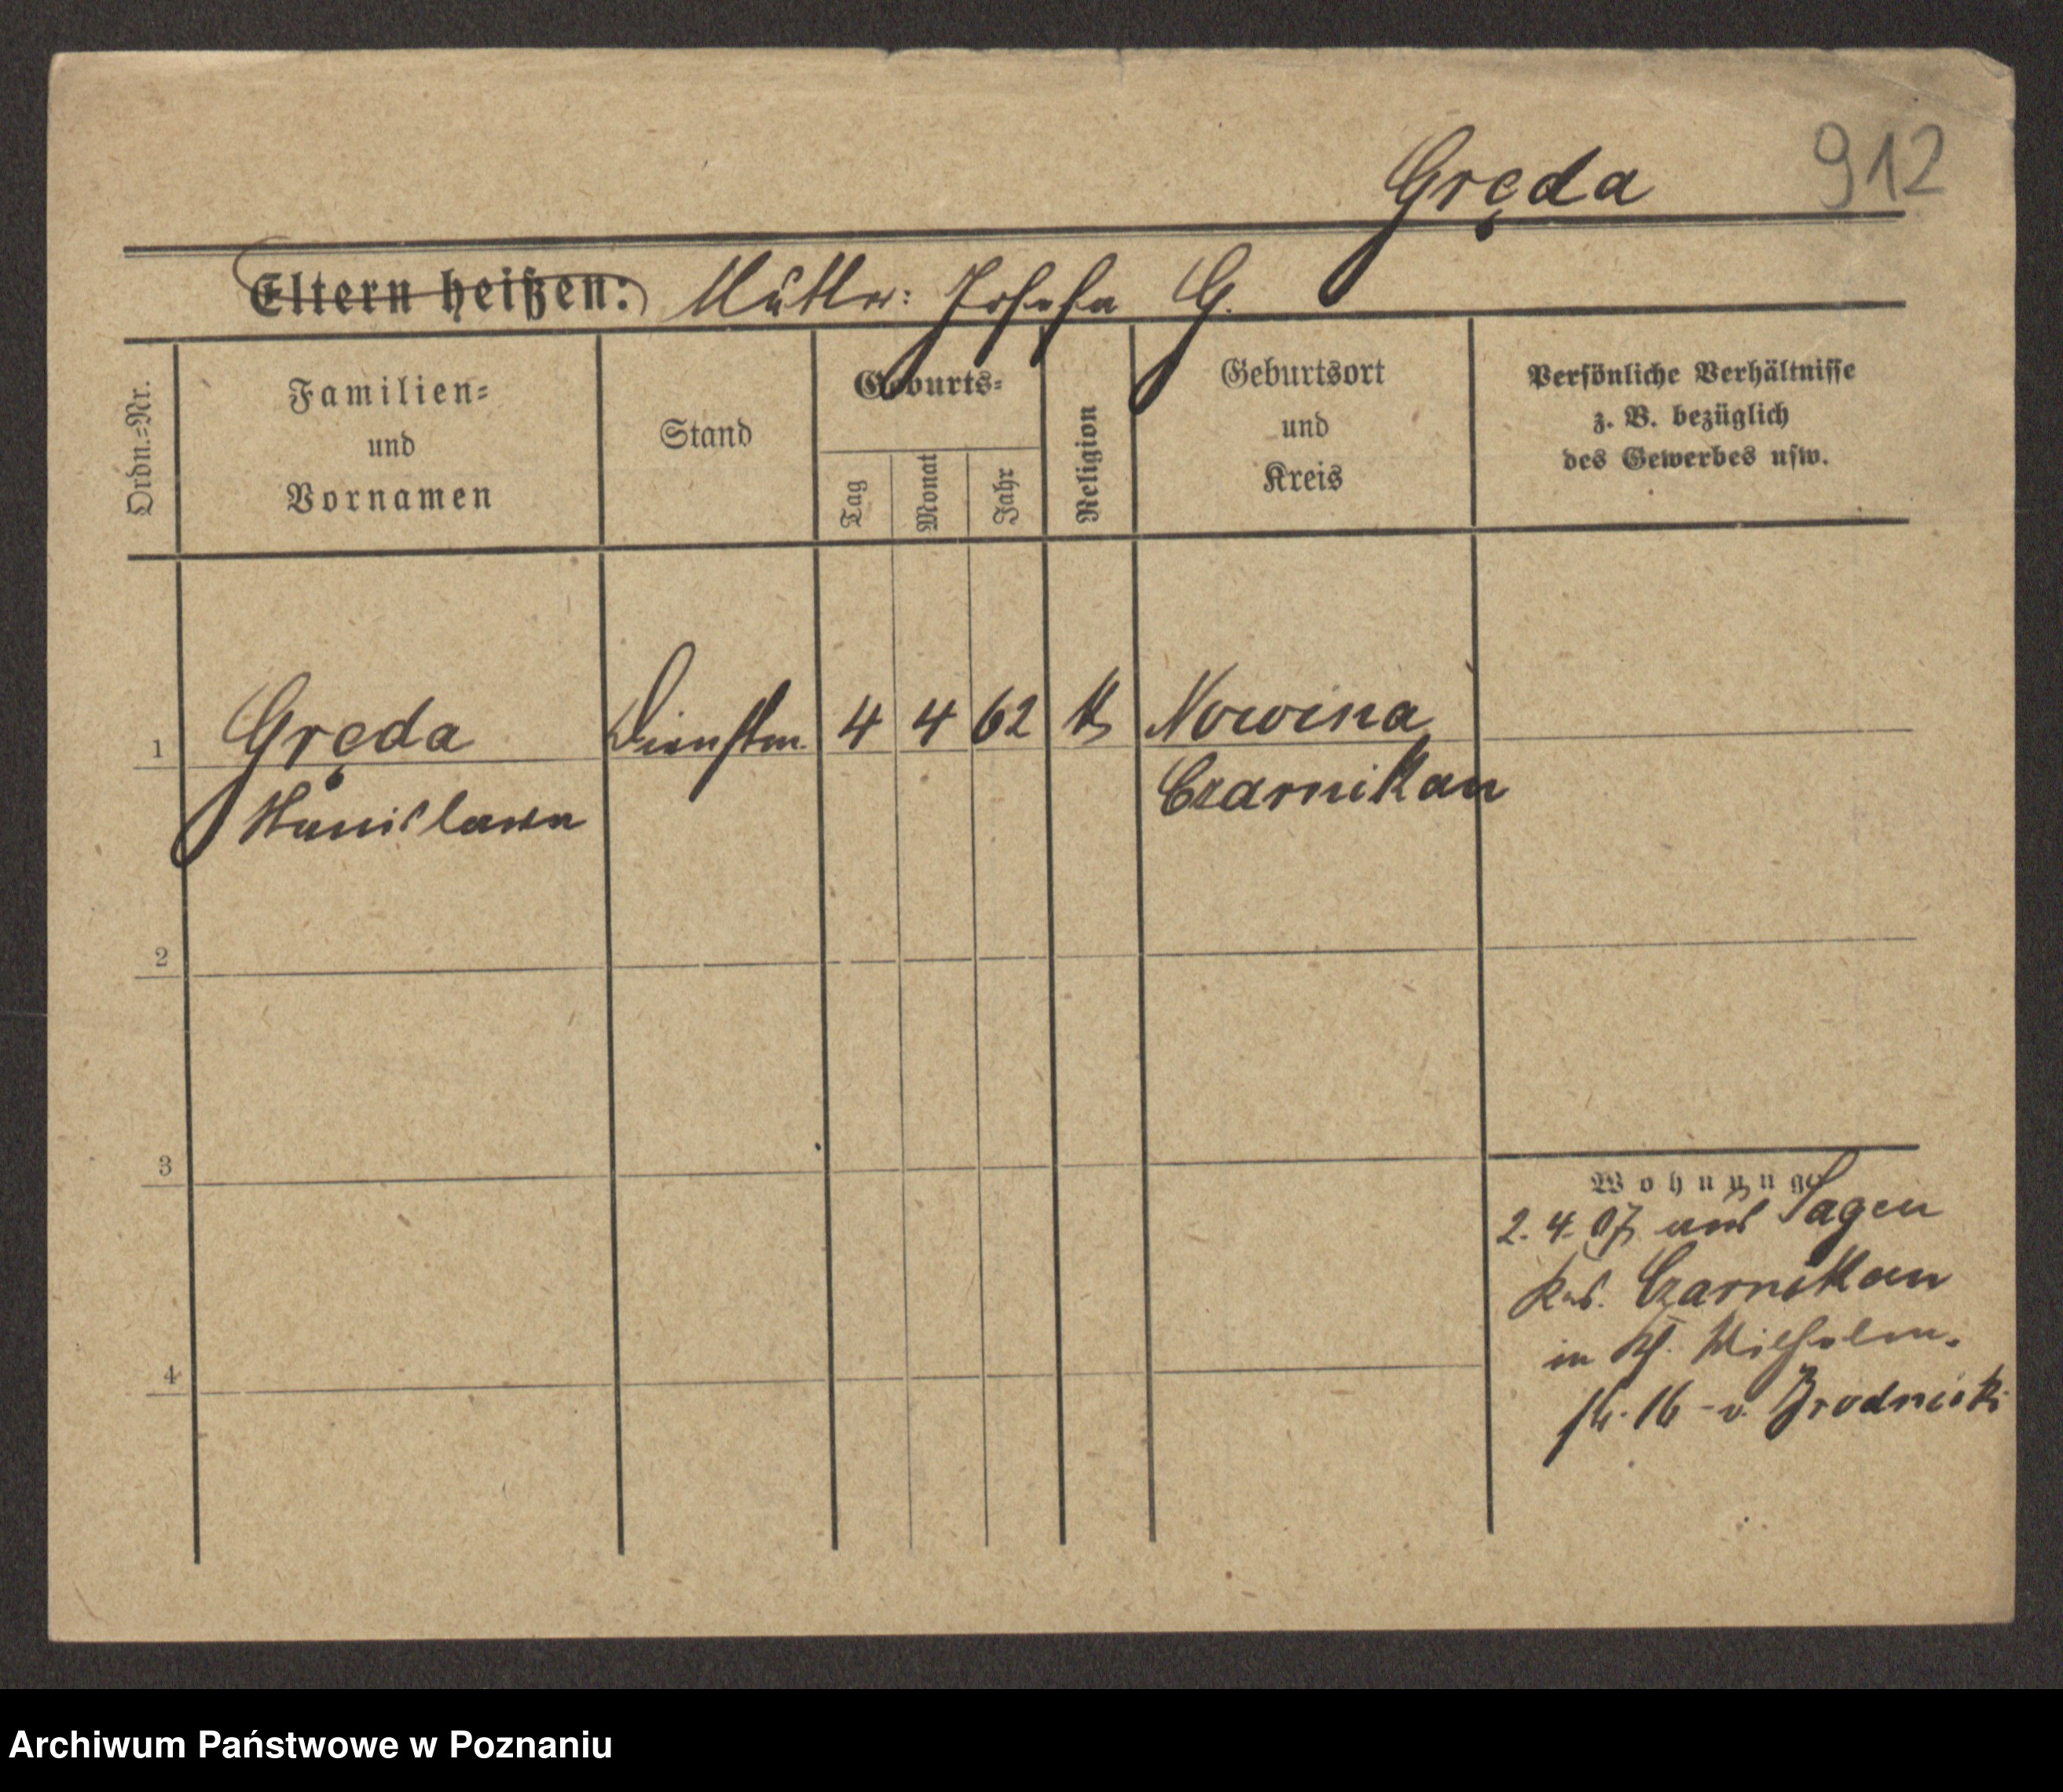 Gręda
912
Eltern heißen: Mutter: Josefa G.
Ordn.=Nr.
Familien=
und
Vornamen
Stand
Geburts=
Tag
Monat
Jahr
Religion
Geburtsort
und
Kreis
Persönliche Verhältnisse
z. B. bezüglich
des Gewerbes usw.
1
Gręda
Stanislawa
Dienstm.
4
4
62
k
Nowina
Czarnikau
2
3
4
Wohnung
2. 4. 07 aus Sagen
Czarnikau
in Wilhelm-
str. 16 v. Brodnicki
Archiwum Państwowe w Poznaniu